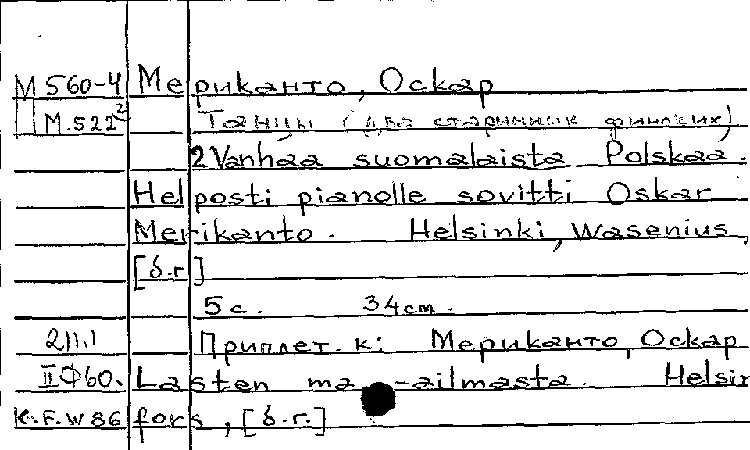 М 560-4 Мериканто, Оскар
М.522² Танцы (два старинных финских)
2 Vanhaa suomalaista Polskaa.
Helposti pianolle sovitti Oskar
Merikanto. Helsinki, Wasenius,
[б.г]
5 с. 34 см.
2/11.1 Приплет. к: Мериканто, Оскар
II Ф 60. Lasten ma -ailmasta. Helsin
K.F.W 86 fors, [б.г.]